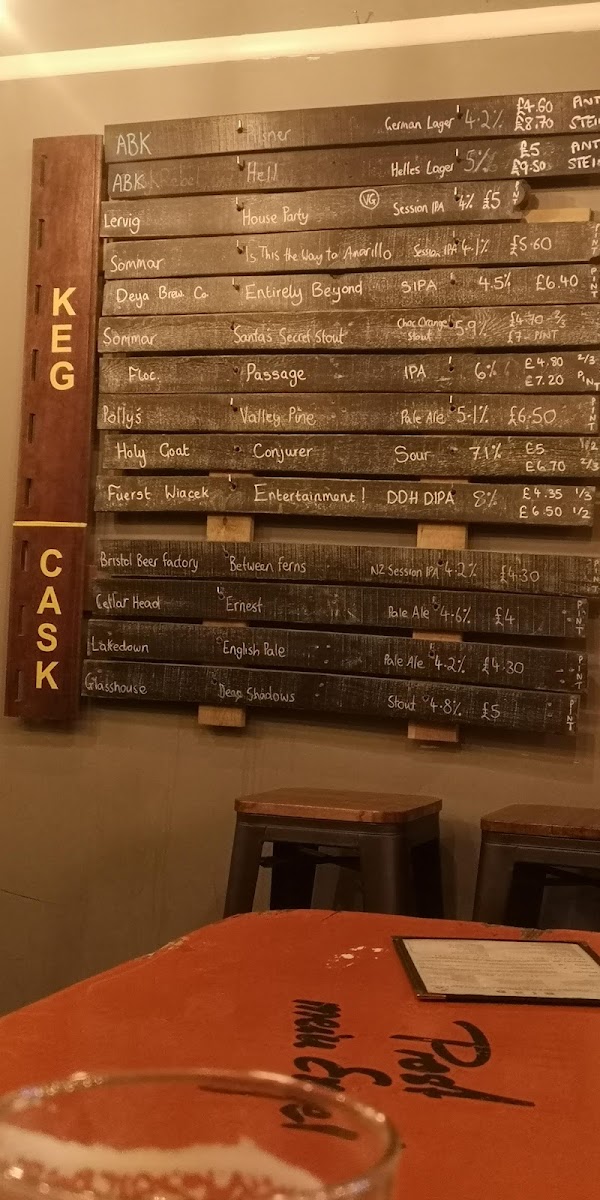 KEG
ABK Pilsner German Lager 4.2% £4.60 PINT
£8.70 STEIN
ABK Hell Helles Lager 5% £5 PINT
£9.50 STEIN
Lervig House Party VG Session IPA 4% £5 PINT
Sommar Is This the Way to Amarillo Session IPA 4.1% £5.60 PINT
Deya Brew Co. Entirely Beyond SIPA 4.5% £6.40 PINT
Sommar Santa's Secret Stout Choc Orange Stout 5.9% £4.70 - 2/3
£7 - PINT
Floc. Passage IPA 6% £4.80 2/3
£7.20 PINT
Polly's Valley Pine Pale Ale 5.1% £6.50 PINT
Holy Goat Conjurer Sour 7.1% £5 1/2
£6.70 2/3
Fuerst Wiacek Entertainment! DDH DIPA 8% £4.35 1/3
£6.50 1/2
CASK
Bristol Beer Factory Between Ferns NZ Session IPA 4.2% £4.30 PINT
Cellar Head Ernest Pale Ale 4.6% £4 PINT
Lakedown English Pale Pale Ale 4.2% £4.30 PINT
Glasshouse Deep Shadows Stout 4.8% £5 PINT